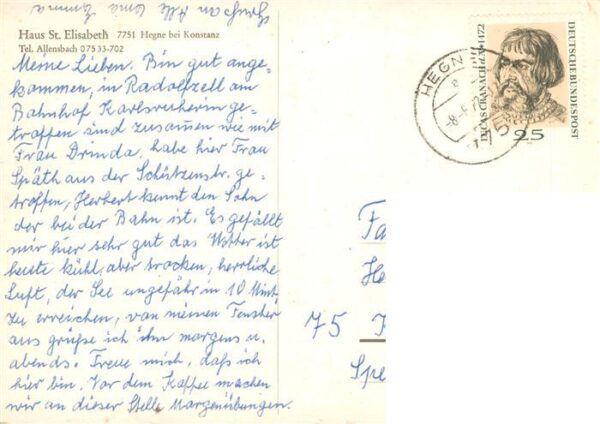 Haus St. Elisabeth 7751 Hegne bei Konstanz
Tel. Allensbach 07533-702
Meine Lieben. Bin gut ange-
kommen, in Radolfzell am
Bahnhof Karlsruherin ge-
troffen sind zusammen wie mit
Frau Drinda, habe hier Frau
Späth aus der Schützenstr. ge-
troffen, Herbert kennt den Sohn
der bei der Bahn ist. Es gefällt
mir hier sehr gut das Wetter ist
heute kühl, aber trocken, herrliche
Luft, der See ungefähr in 10 Mint.
zu erreichen, von meinen Fenster
aus grüße ich ihn morgens u.
abends. Freue mich, daß ich
hier bin. Vor dem Kaffee machen
wir an dieser Stelle Morgenübungen.
Oma
LUCAS CRANACH d. Ä. 1472
DEUTSCHE BUNDESPOST
25
HEGN
775
Fa
He
75
Spe